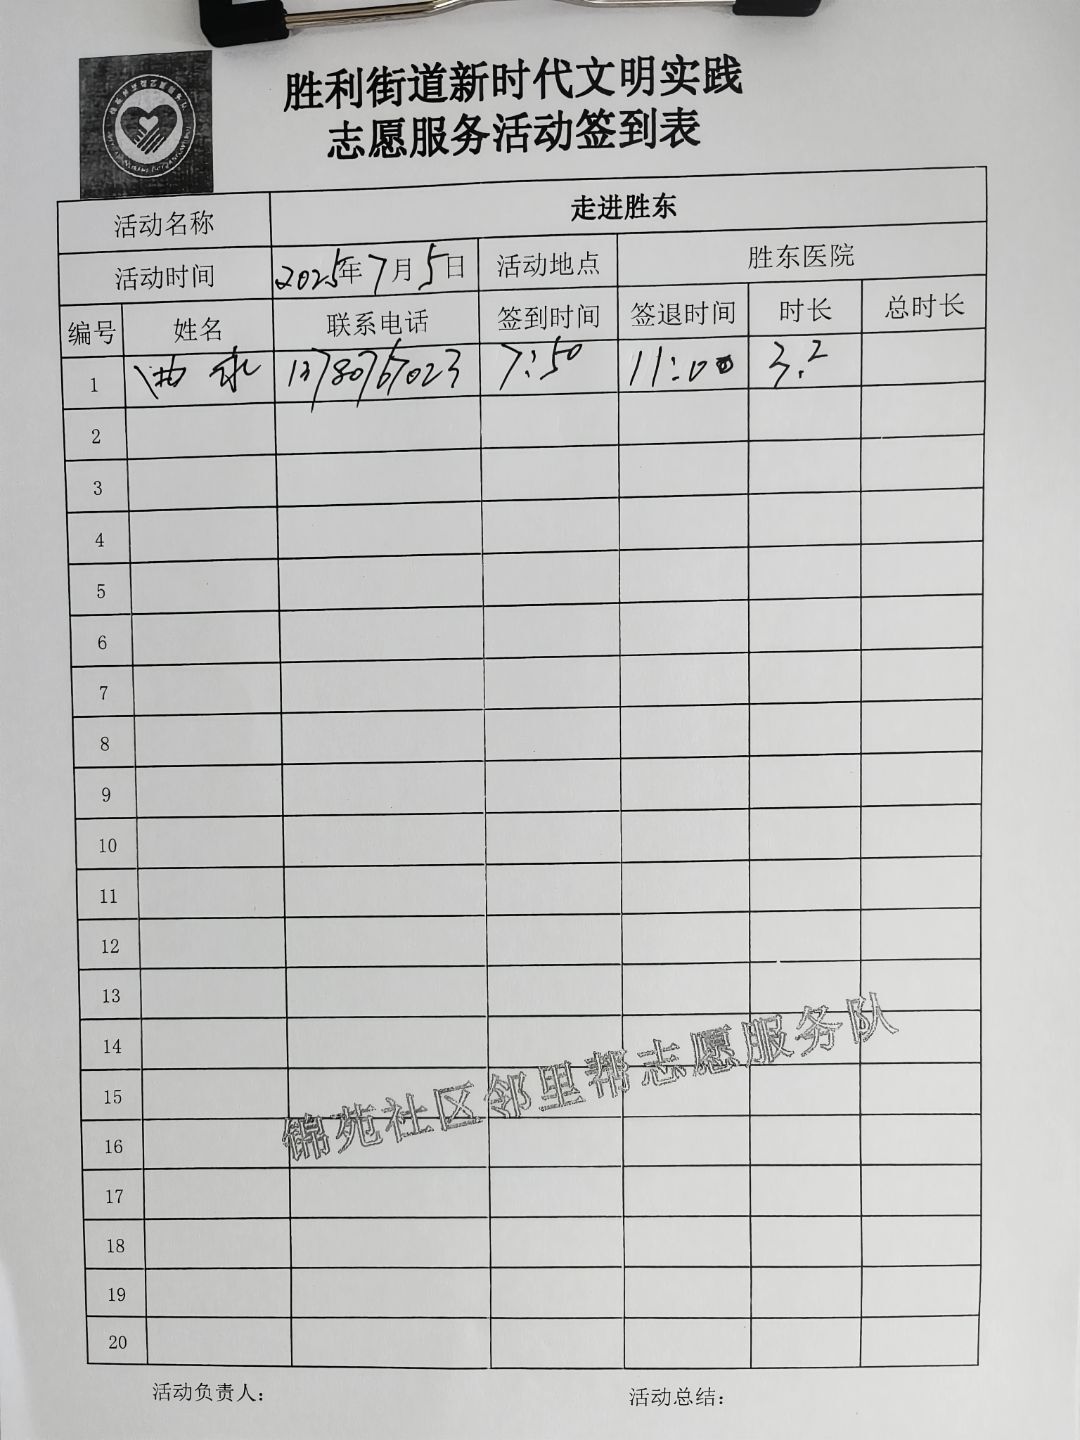 胜利街道新时代文明实践
志愿服务活动签到表
活动名称 走进胜东
活动时间 2025年7月5日 活动地点 胜东医院
编号 姓名 联系电话 签到时间 签退时间 时长 总时长
1 7:50 11:00 3.2
2
3
4
5
6
7
8
9
10
11
12
13
14
15
16
17
18
19
20
锦苑社区邻里帮志愿服务队
活动负责人: 活动总结: